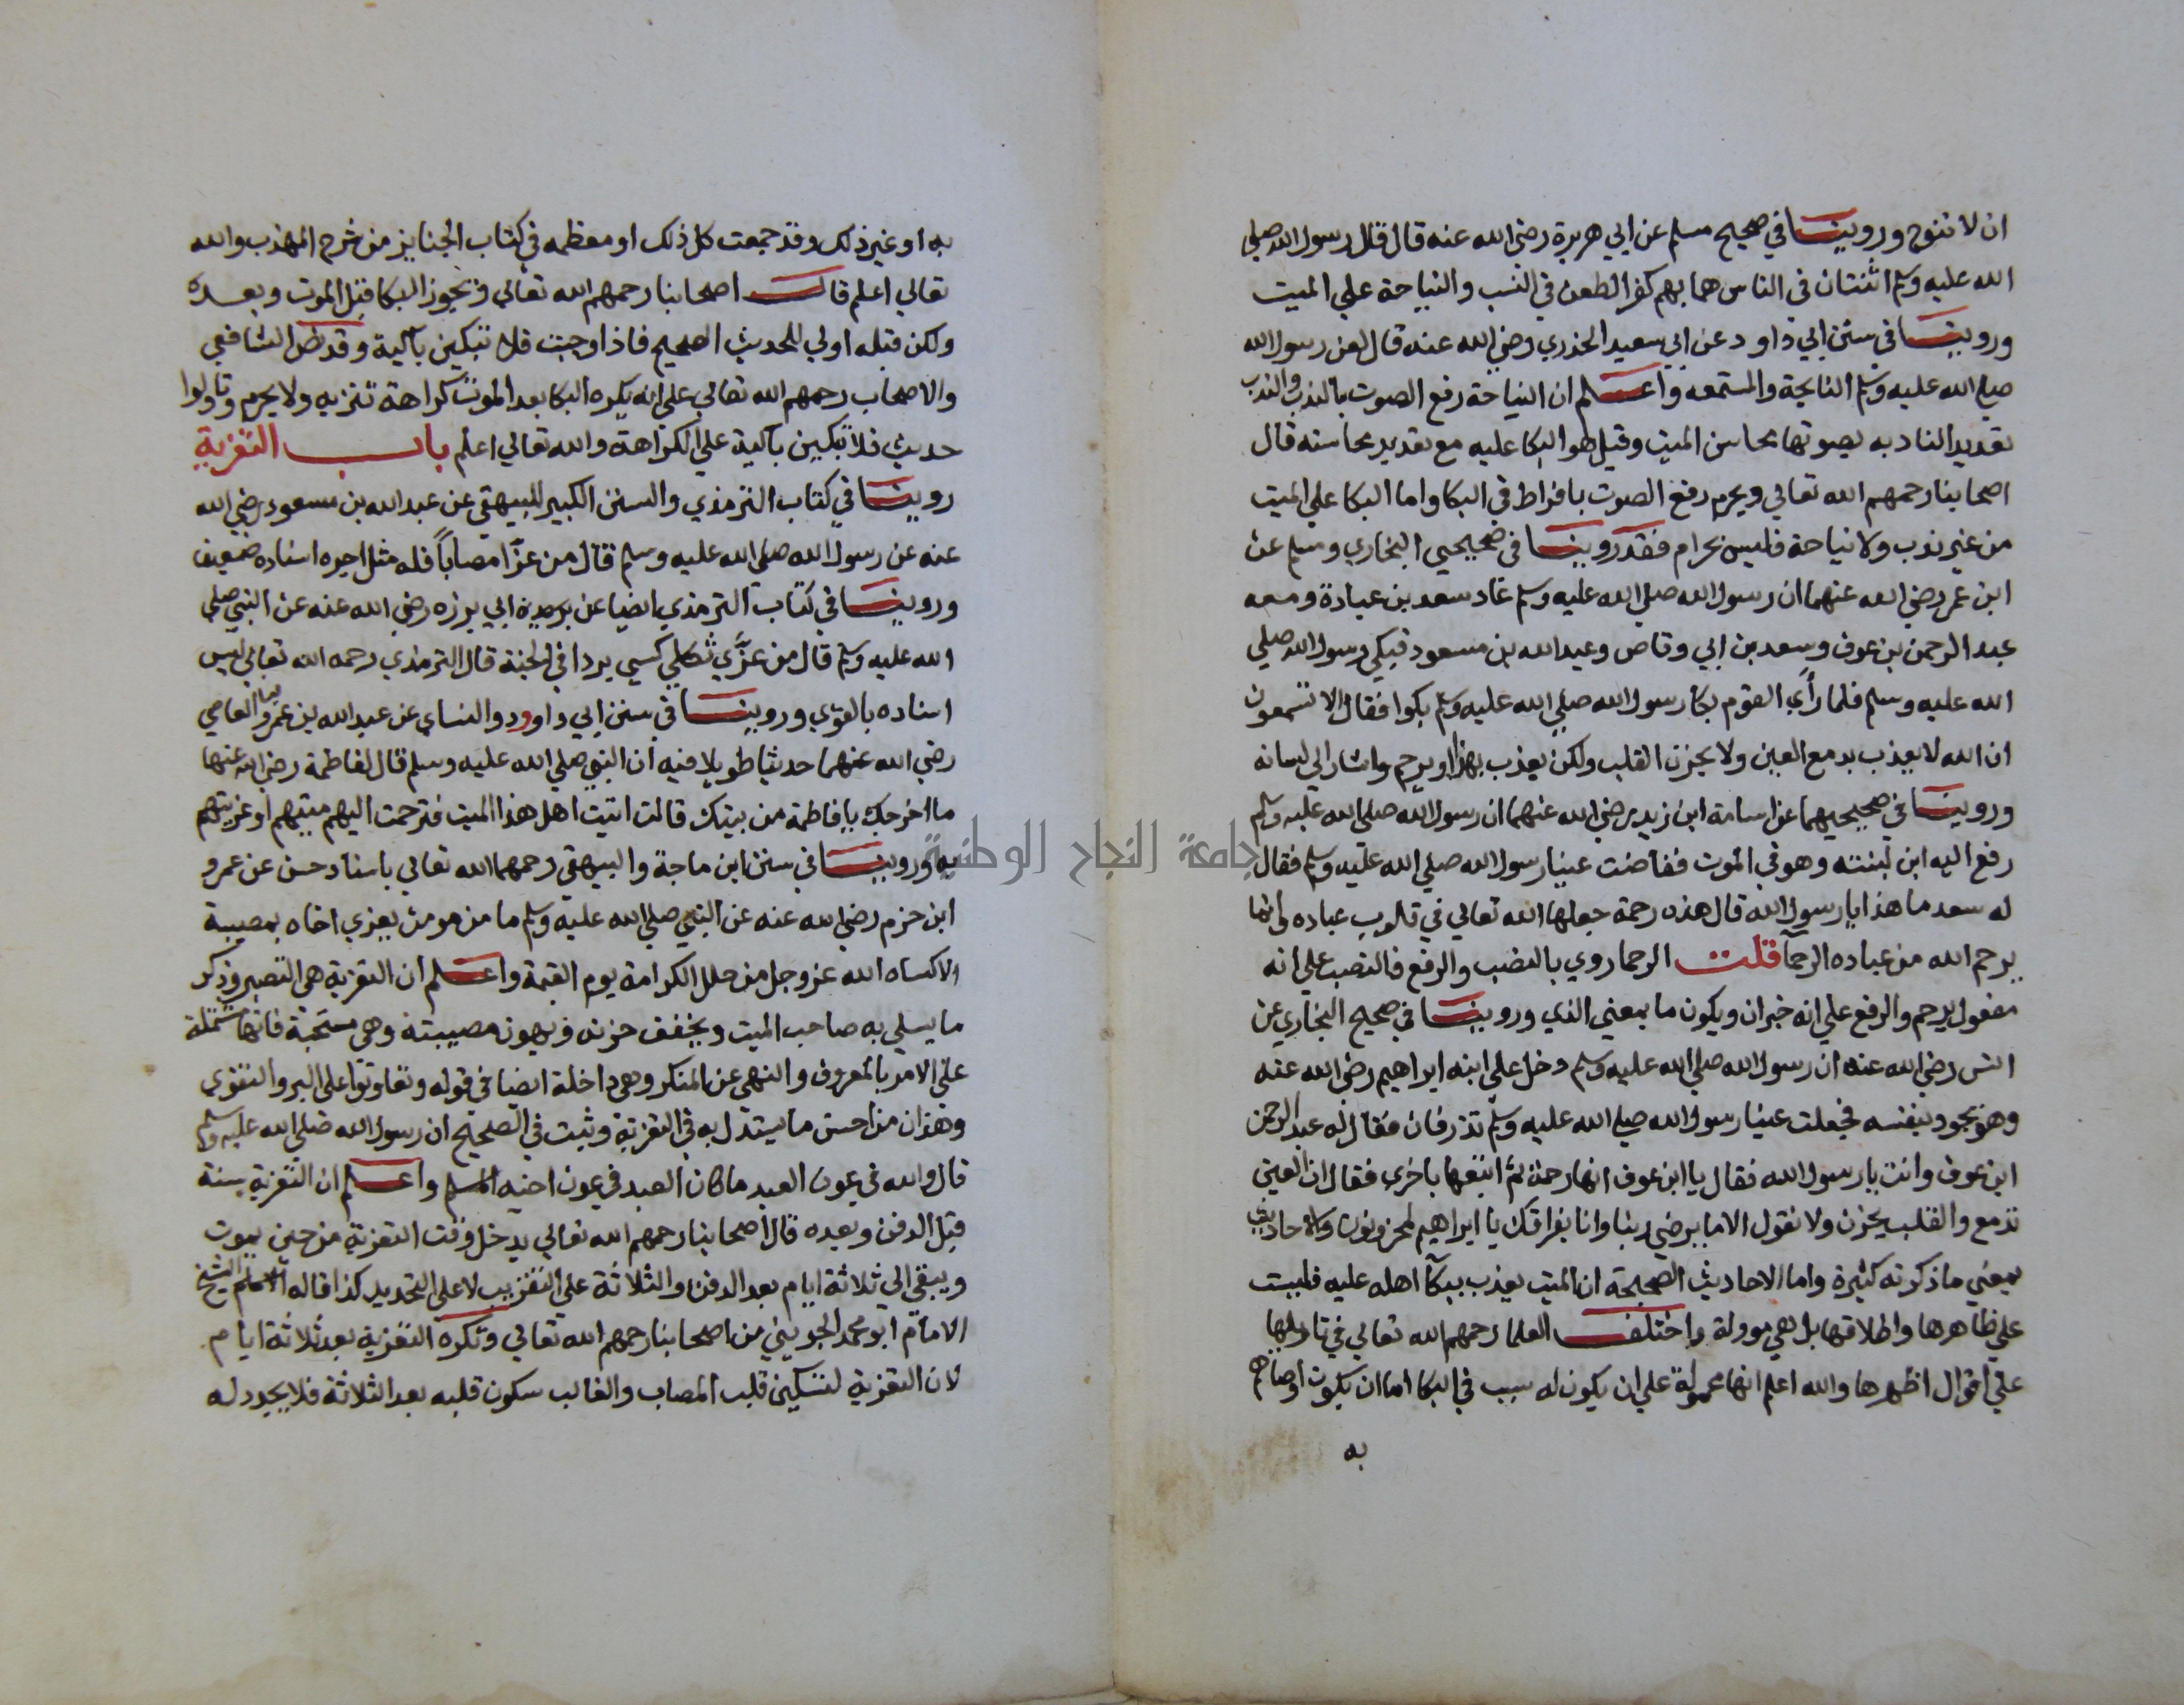 ان لا ننوح وروينا في صحيح مسلم عن ابي هريرة رضي الله عنه قال قال رسول الله صلي
الله عليه وسلم اثنتان في الناس هما بهم كفر الطعن في النسب والنياحة علي الميت
وروينا في سنن ابي داود عن ابي سعيد الخدري رضي الله عنه قال لعن رسول الله
صلي الله عليه وسلم النايحة والمستمعه واعلم ان النياحة رفع الصوت بالندب والندب
تعديد النادبه بصوتها محاسن الميت وقيل هو البكا عليه مع تعديد محاسنه قال
اصحابنا رحمهم الله تعالي ويحرم رفع الصوت بافراط في البكا واما البكا علي الميت
من غير ندب ولا نياحة فليس بحرام فقد روينا في صحيحي البخاري ومسلم عن
ابن عمر رضي الله عنهما ان رسول الله صلي الله عليه وسلم عاد سعد بن عبادة ومعه
عبد الرحمن بن عوف وسعد بن ابي وقاص وعبد الله بن مسعود فبكي رسول الله صلي
الله عليه وسلم فلما رأي القوم بكا رسول الله صلي الله عليه وسلم بكوا فقال الا تسمعون
ان الله لا يعذب بدمع العين ولا بحزن القلب ولكن يعذب بهذا او يرحم واشار الي لسانه
وروينا في صحيحيهما عن اسامة ابن زيد رضي الله عنهما ان رسول الله صلي الله عليه وسلم
رفع اليه ابن ابنته وهو في الموت ففاضت عينا رسول الله صلي الله عليه وسلم فقال
له سعد ما هذا يا رسول الله قال هذه رحمة جعلها الله تعالي في قلوب عباده وانما
يرحم الله من عباده الرحمآ قلت الرحما روي بالنصب والرفع فالنصب علي انه
مفعول يرحم والرفع علي انه خبر ان ويكون ما بمعني الذي وروينا في صحيح البخاري عن
انس رضي الله عنه ان رسول الله صلي الله عليه وسلم دخل علي ابنه ابراهيم رضي الله عنه
وهو يجود بنفسه فجعلت عينا رسول الله صلي الله عليه وسلم تذرفان فقال له عبد الرحمن
ابن عوف وانت يا رسول الله فقال يا ابن عوف انها رحمة ثم اتبعها باخري فقال ان العين
تدمع والقلب يحزن ولا نقول الا ما يرضي ربنا وانا بفراقك يا ابراهيم لمحزونون والاحاديث
بمعني ما ذكرته كثيرة واما الاحاديث الصحيحة ان الميت يعذب ببكآ اهله عليه فليست
علي ظاهرها واطلاقها بل هي موولة واختلف العلما رحمهم الله تعالي في تاويلها
علي اقوال اظهرها والله اعلم انها محمولة علي ان يكون له سبب في البكا اما ان يكون اوصاهم
به
به او غير ذلك وقد جمعت كل ذلك او معظمه في كتاب الجنايز من شرح المهذب والله
تعالي اعلم قال اصحابنا رحمهم الله تعالي ويجوز البكا قبل الموت وبعده
ولكن قبله اولي للحديث الصحيح فاذا وجبت فلا تبكين باكية وقد نص الشافعي
والاصحاب رحمهم الله تعالي علي انه يكره البكا بعد الموت كراهة تنزيه ولا يحرم وتاولوا
حديث فلا تبكين باكية علي الكراهة والله تعالي اعلم باب التعزية
روينا في كتاب الترمذي والسنن الكبير للبيهقي عن عبد الله بن مسعود رضي الله
عنه عن رسول الله صلي الله عليه وسلم قال من عزّا مصاباً فله مثل اجره اسناده ضعيف
وروينا في كتاب الترمذي ايضا عن ابي برزه رضي الله عنه عن النبي صلي
الله عليه وسلم قال من عزّي ثكلي كسي بردا في الجنة قال الترمذي رحمه الله تعالي ليس
اسناده بالقوي وروينا في سنن ابي داوود والنساي عن عبد الله بن عمرو بن العاصي
رضي الله عنهما حديثا طويلا فيه ان النبي صلي الله عليه وسلم قال لفاطمة رضي الله عنها
ما اخرجك يا فاطمة من بيتك قالت اتيت اهل هذا الميت فترحمت اليهم ميتهم او عزيتهم
به وروينا في سنن ابن ماجة والبيهقي رحمهما الله تعالي باسناد حسن عن عمرو
ابن حزم رضي الله عنه عن النبي صلي الله عليه وسلم ما من مومن يعزي اخاه بمصيبة
الا كساه الله عز وجل من حلل الكرامة يوم القيمة واعلم ان التعزية هي التصبير وذكر
ما يسلي به صاحب الميت ويخفف حزنه ويهون مصيبته وهي مستحبة فانها مشتملة
علي الامر بالمعروف والنهي عن المنكر وهي داخلة ايضا في قوله وتعاونوا علي البر والتقوي
وهذا من احسن ما يستدل به في التعزية وثبت في الصحيح ان رسول الله صلي الله عليه وسلم
قال والله في عون العبد ما كان العبد في عون اخيه المسلم واعلم ان التعزية سنة
قبل الدفن وبعده قال اصحابنا رحمهم الله تعالي يدخل وقت التعزية من حين يموت
ويبقي الي ثلاثة ايام بعد الدفن والثلاثة علي التقريب لا علي التحديد كذا قاله الشيخ
الامام ابو محمد الجويني من اصحابنا رحمهم الله تعالي وتكره التعزية بعد ثلاثة ايام
لان التعزية لتسكين قلب المصاب والغالب سكون قلبه بعد الثلاثة فلا يجدد له
جامعة النجاح الوطنية